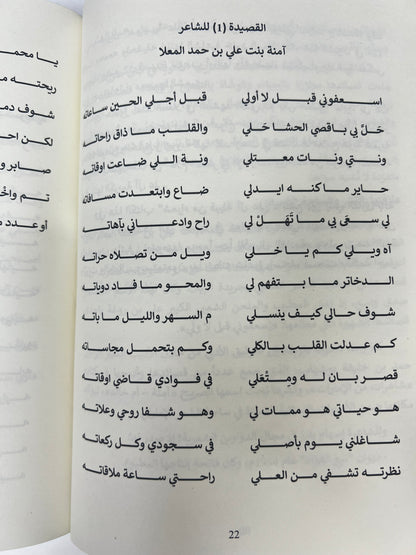 القصيدة (1) للشاعر
آمنة بنت علي بن حمد المعلا
اسعفوني قبل لا أولي قبل أجلي الحين ساعاته
حَلّ بي باقصي الحشا خلي والقلب ما ذاق راحاته
ونتي ونات معتلي ونة اللي ضاعت اوقاته
حاير ما كنه ايدلي ضاع وابتعدت مسافاته
لي سعَى بي ما تَهَلْ لي راح وادعاني بآهاته
آه ويلي كم يا خلي ويل من تصلاه حراته
الدخاتر ما بتفهم لي والمحو ما فاد دوباته
شوف حالي كيف ينسلي م السهر والليل ما باته
كم عدلت القلب بالكلي وكم بتحمل مجاساته
قصر بان له ومتْعَلي في فوادي قاضي اوقاته
هو حياتي هو ممات لي وهو شفا روحي وعلاته
شاغلني يوم بأصلي في سجودي وكل ركعاته
نظرته تشفي من العلي راحتي ساعة ملاقاته
22
يا محمـ
ريحته مـ
شوف دمـ
لكن احـ
صابر و
تم واخْـ
أو عدد مـ